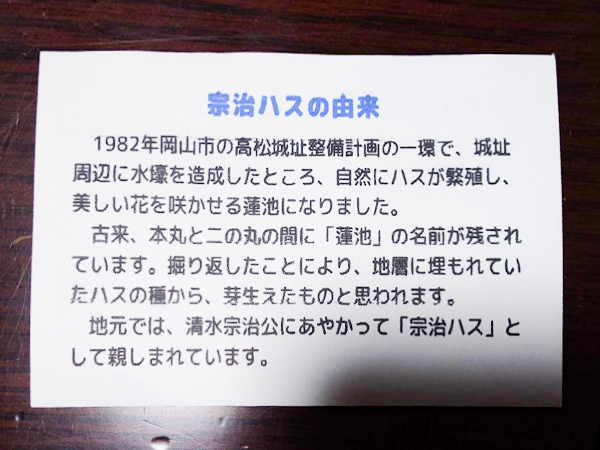 宗治ハスの由来
1982年岡山市の高松城址整備計画の一環で、城址
周辺に水壕を造成したところ、自然にハスが繁殖し、
美しい花を咲かせる蓮池になりました。
古来、本丸と二の丸の間に「蓮池」の名前が残され
ています。掘り返したことにより、地層に埋もれてい
たハスの種から、芽生えたものと思われます。
地元では、清水宗治公にあやかって「宗治ハス」と
して親しまれています。